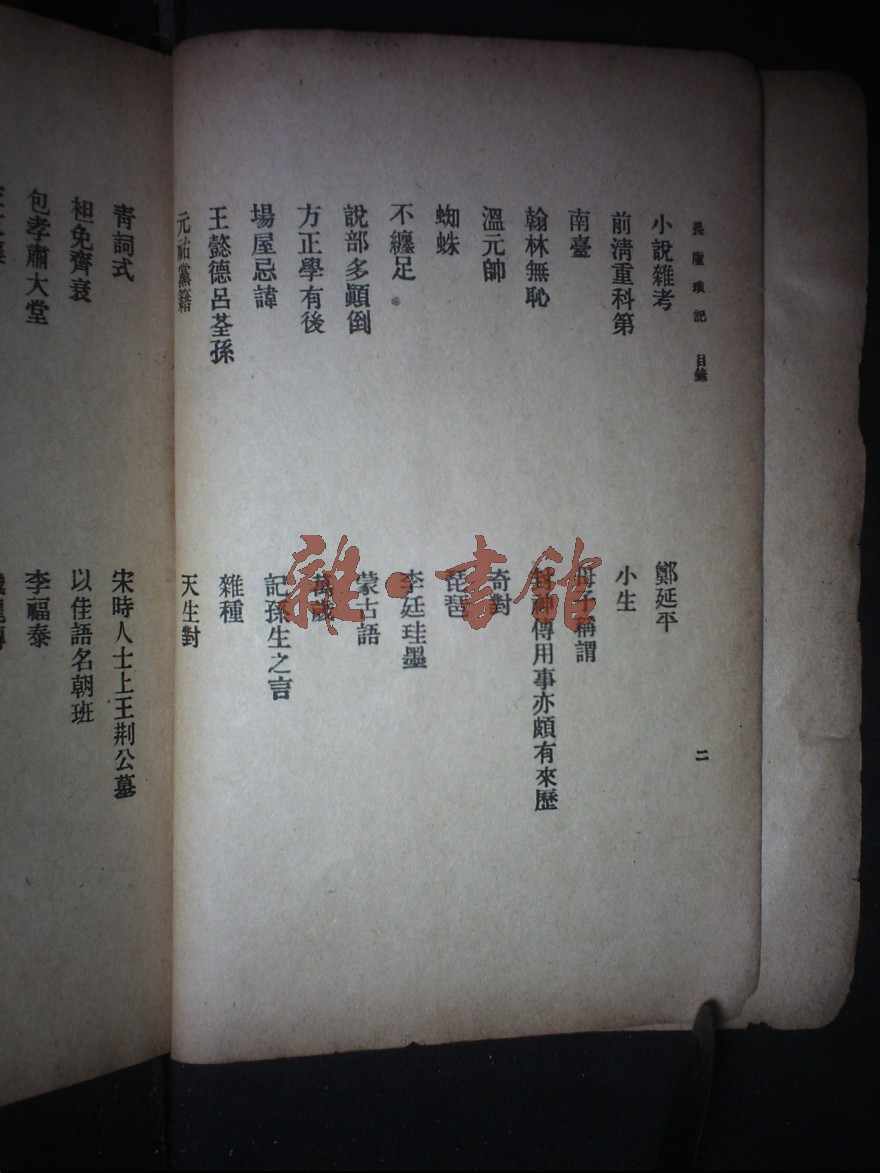 畏廬瑣記 目錄 二
小說雜考
鄭延平
前淸重科第
小生
南臺
母子稱謂
翰林無恥
封神傳用事亦頗有來歷
溫元帥
奇對
蜘蛛
琵琶
不纏足
李廷珪墨
說部多顚倒
蒙古語
方正學有後
萬歲
場屋忌諱
記孫生之言
王懿德呂荃孫
雜種
元祐黨籍
天生對
靑詞式
宋時人士上王荆公墓
袒免齊衰
以佳語名朝班
包孝肅大堂
李福泰
雜·書館